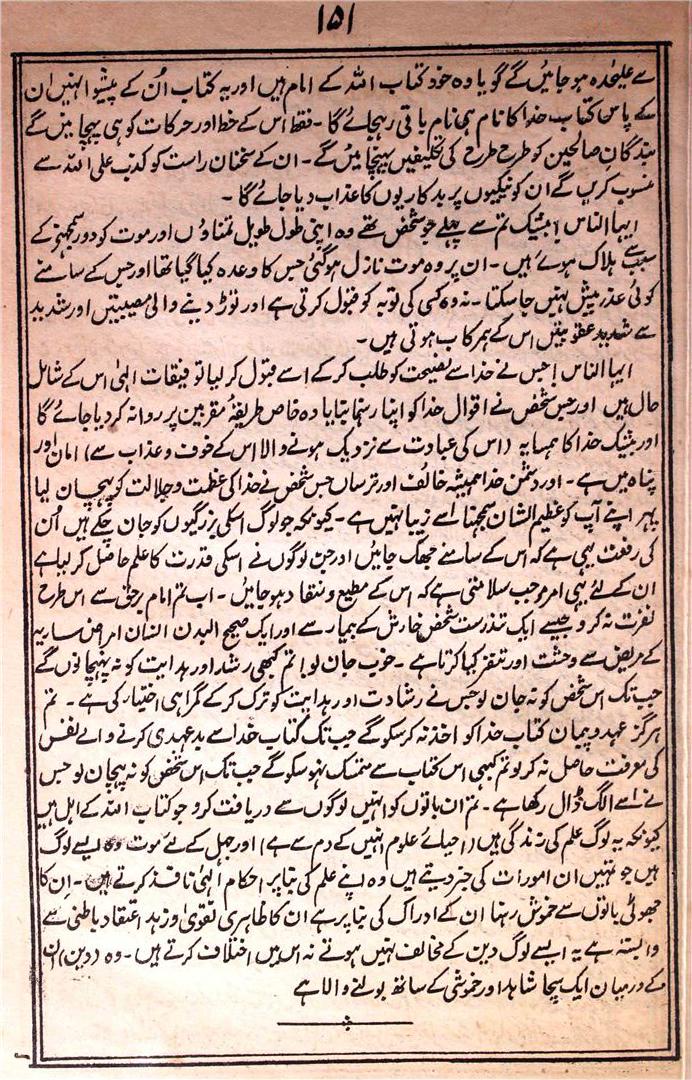 ۱۵۱
سے علیحدہ ہو جائیں گے گویا وہ خود کتاب اللہ کے امام ہیں اور یہ کتاب اُن کے پیشوا نہیں ان
کے پاس کتاب خدا کا نام ہی نام باقی رہجائے گا ۔ فقط اس کے خط اور حرکات کو ہی پہچانیں گے
بندگانِ صالحین کو طرح طرح کی تکلیفیں پہنچائیں گے ۔ ان کے سخنان راست کو کذب علی اللہ سے
منسوب کریں گے ان کو نیکیوں پر بدکاریوں کا عذاب دیا جائے گا ۔
ایہا الناس ! بیشک تم سے پہلے جو شخص تھے وہ اپنی طول طویل تمناؤں اور موت کو دور سمجھنے کے
سبب سے ہلاک ہوئے ہیں ۔ ان پر وہ موت نازل ہو گئی جس کا وعدہ کیا گیا تھا اور جس کے سامنے
کوئی عذر پیش نہیں جا سکتا ۔ نہ وہ کسی کی توبہ کو قبول کرتی ہے اور توڑ دینے والی مصیبتیں اور شدید
سے شدید عقوبتیں اس کے ہمرکاب ہوتی ہیں ۔
ایہا الناس ! جس نے خدا سے نصیحت کو طلب کر کے اسے قبول کر لیا تو فیقات الہٰی اس کے شامل
حال ہیں اور جس شخص نے اقوال خدا کو اپنا رہنما بنایا وہ خاص طریقۂ مقربین پر روانہ کر دیا جائے گا
اور بیشک خدا کا ہمسایہ (اس کی عبادت سے نزدیک ہونے والا اس کے خوف و عذاب سے) امان اور
پناہ میں ہے ۔ اور دشمن خدا ہمیشہ خائف اور ترساں جس شخص نے خدا کی عظمت و جلالت کو پہچان لیا
پھر اپنے آپ کو عظیم الشان سمجھنا اسے زیبا نہیں ہے ۔ کیونکہ جو لوگ اسکی بزرگیوں کو جان چکے ہیں اُن
کی رفعت یہی ہے کہ اس کے سامنے جھک جائیں اور جن لوگوں نے اسکی قدرت کا علم حاصل کر لیا ہے
ان کے لئے یہی امر موجب سلامتی ہے کہ اس کے مطیع و منقاد ہو جائیں ۔ اب تم امام برحق سے اس طرح
نفرت نہ کرو جیسے ایک تندرست شخص خارش کے بیمار سے اور ایک صحیح البدن انسان امراض ساریہ
کے مریض سے وحشت اور تنفر کیا کرتا ہے ۔ خوب جان لو ! تم کبھی رشاد اور ہدایت کو نہ پہچانو گے
جب تک اس شخص کو نہ جان لو جس نے رشادت اور ہدایت کو ترک کر کے گمراہی اختیار کی ہے ۔ تم
ہرگز عہد و پیمان کتاب خدا کو اخذ نہ کر سکو گے جب تک کتاب خدا سے بد عہدی کرنے والے نفس
کی معرفت حاصل نہ کر لو تم کبھی اس کتاب سے متمسک نہو سکو گے جب تک اس شخص کو نہ پہچان لو جس
نے اسے الگ ڈال رکھا ہے ۔ تم ان باتوں کو انہیں لوگوں سے دریافت کرو جو کتاب اللہ کے اہل ہیں
کیونکہ یہ لوگ علم کی زندگی ہیں (احیائے علوم انہیں کے دم سے ہے) اور جہل کے لئے موت وہ ایسے لوگ
ہیں جو تمہیں ان امورات کی خبر دیتے ہیں وہ اپنے علم کی بنا پر احکام الٰہی نافذ کرتے ہیں ۔ اِن کا
جھوٹی باتوں سے خموش رہنا ان کے ادراک کی بنا پر ہے ان کا ظاہری تقویٰ و زہد اعتقاد باطنی سے
وابستہ ہے یہ ایسے لوگ دین کے مخالف نہیں ہوتے نہ اس میں اختلاف کرتے ہیں ۔ وہ (دین) ان
کے درمیان ایک سچا شاہد اور خموشی کے ساتھ بولنے والا ہے